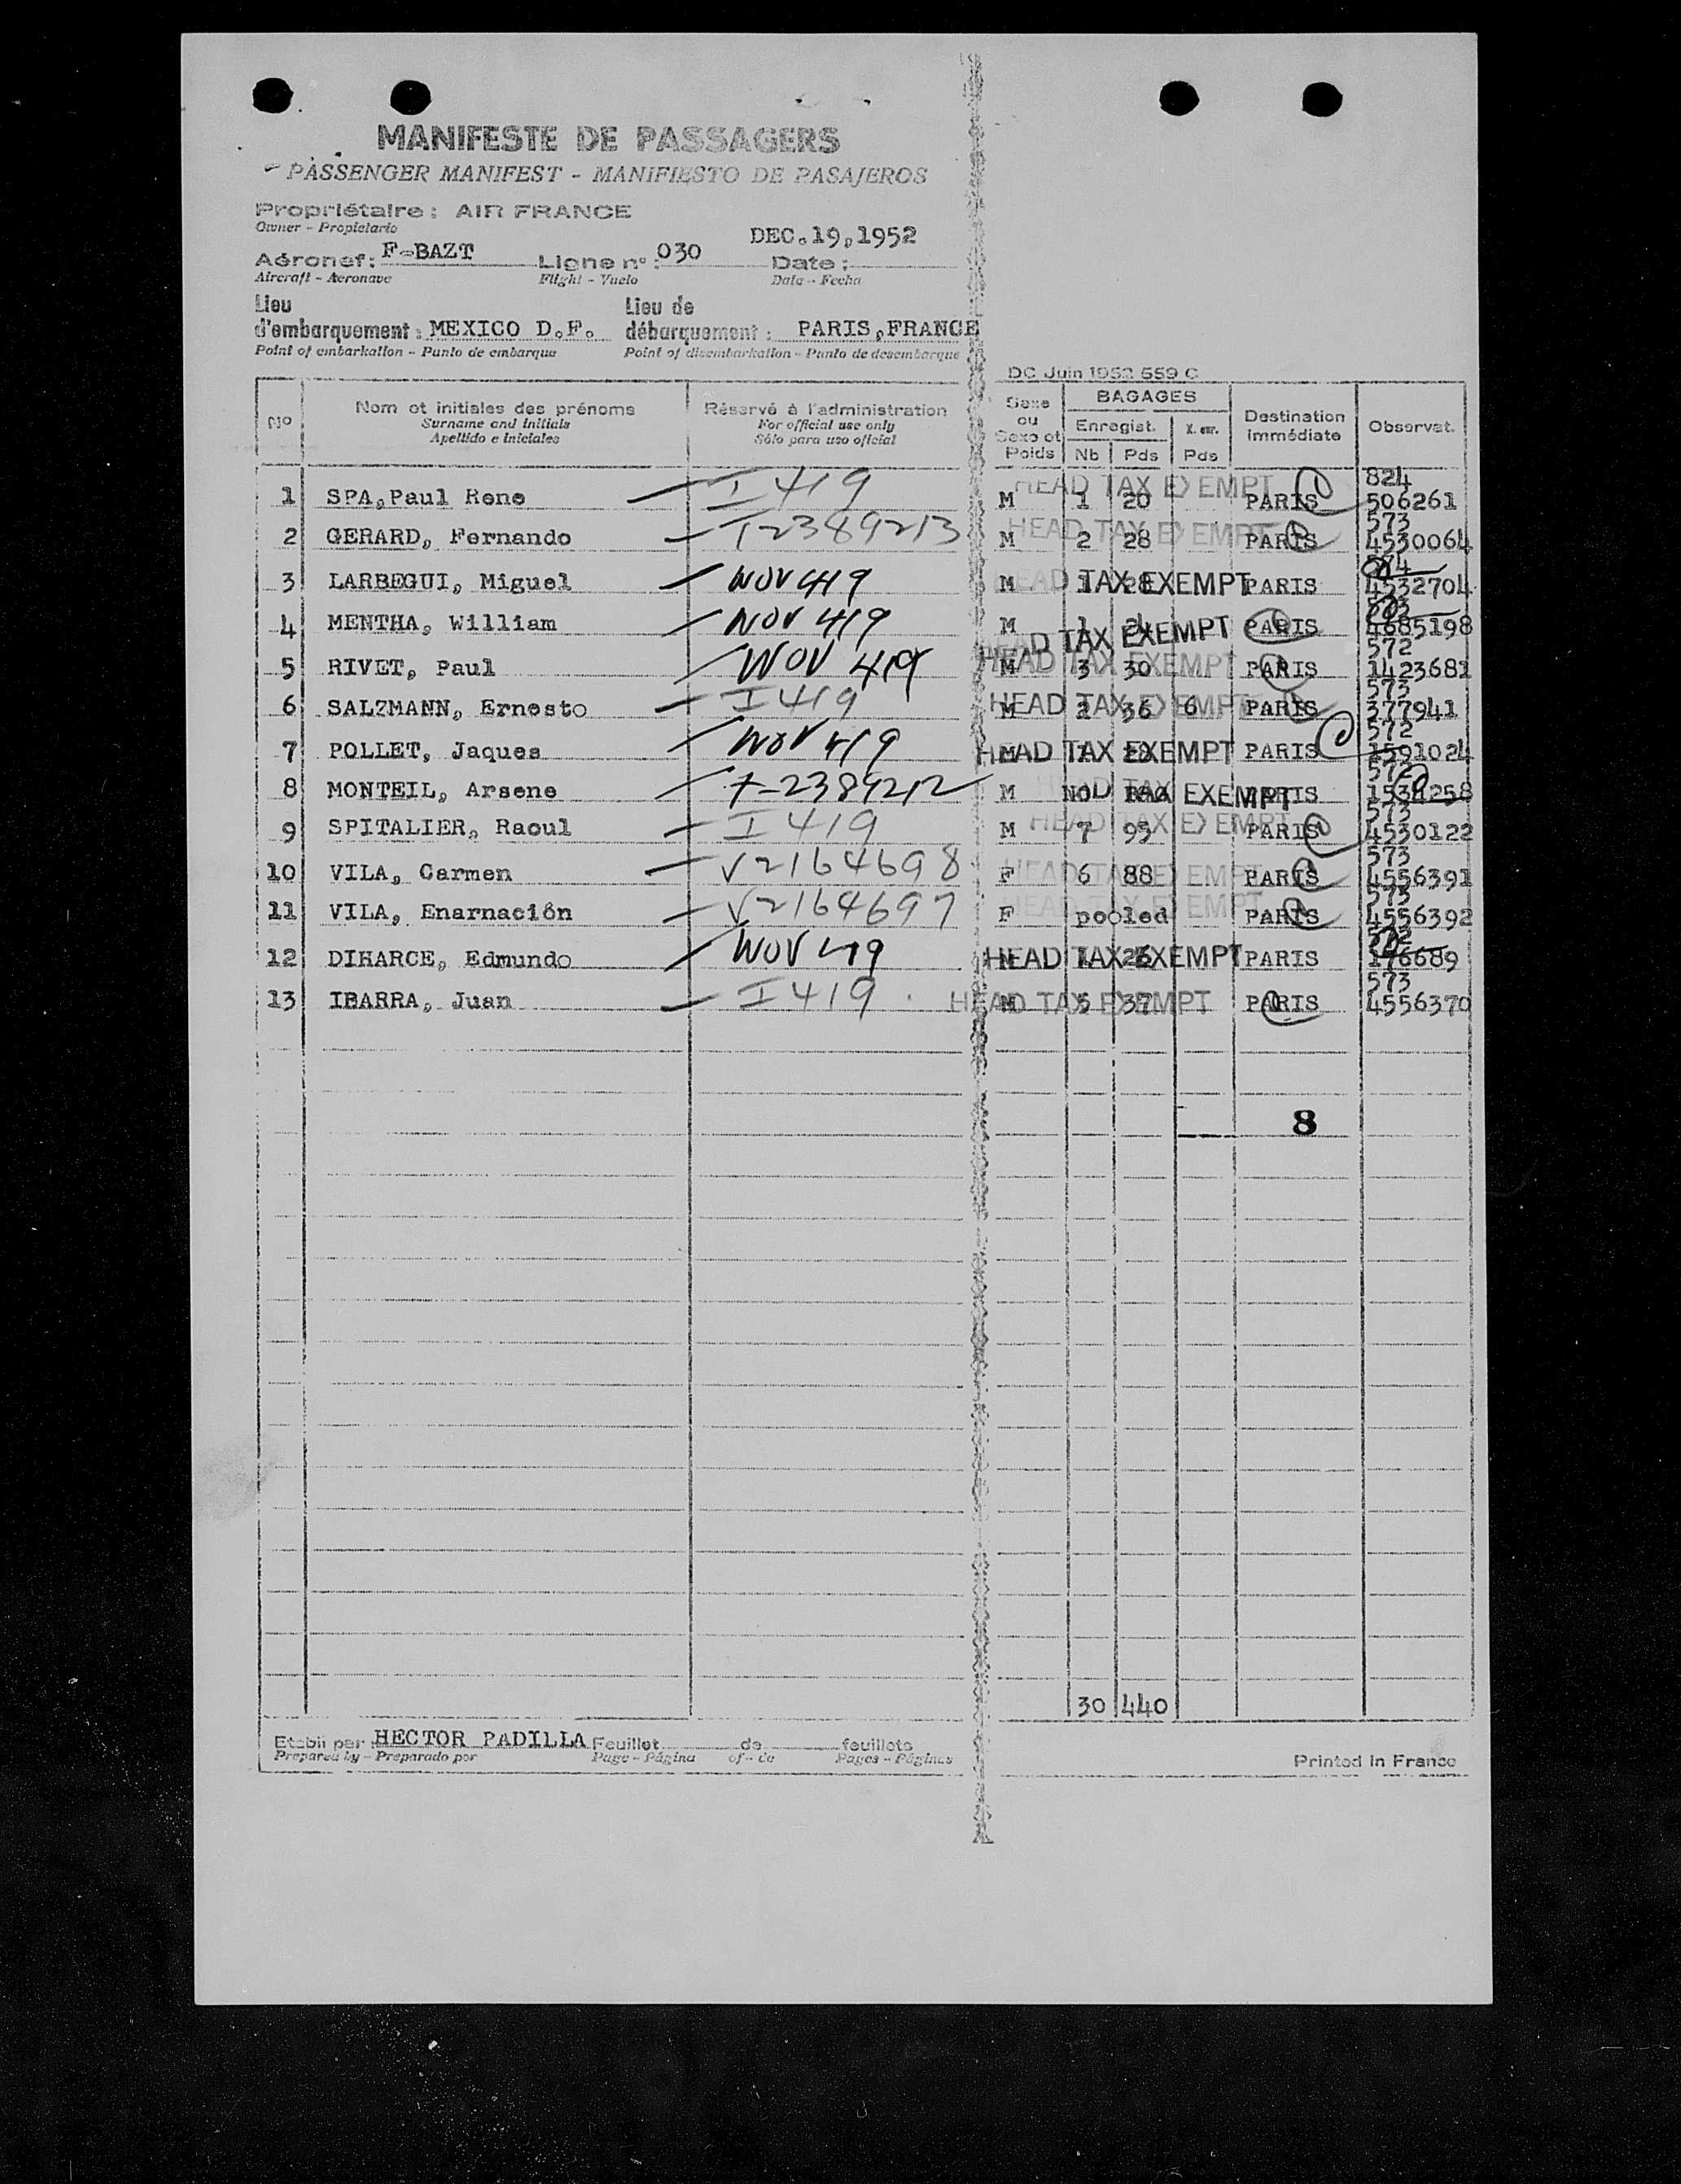 MANIFESTE DE PASSAGERS
PASSENGER MANIFEST - MANIFIESTO DE PASAJEROS
Propriétaire : AIR FRANCE
Owner - Propietario
DEC.19,1952
Aéronef: F-BAZT Ligne nº : 030 Date :
Aircraft - Aeronave Flight - Vuelo Date - Fecha
Lieu Lieu de
d'embarquement : MEXICO D.F. débarquement : PARIS,FRANCE
Point of embarkation - Punto de embarque Point of disembarkation - Punto de desembarque
DC Juin 1952 559 C
Nº Nom et initiales des prénoms Réservé à l'administration Sexe ou Sexe et Poids BAGAGES Destination immédiate Observat.
Surname and initials For official use only Enregist. X. enr.
Apellido e iniciales Sólo para uso oficial Nb Pds Pds
1 SPA,Paul Rene I 419 M HEAD TAX EXEMPT 1 20 PARIS 824 506261
2 GERARD, Fernando T2389213 M HEAD TAX EXEMPT 2 28 PARIS 573 4530064
3 LARBEGUI, Miguel WOV 419 M HEAD TAX EXEMPT 1 28 PARIS 4532704
4 MENTHA, William WOV 419 M HEAD TAX EXEMPT 1 PARIS 4685198
5 RIVET, Paul WOV 419 M HEAD TAX EXEMPT 3 30 PARIS 572 1423681
6 SALZMANN, Ernesto I 419 M HEAD TAX EXEMPT 2 36 6 PARIS 573 377941
7 POLLET, Jaques WOV 419 HEAD TAX EXEMPT PARIS 572 1591024
8 MONTEIL, Arsene T-2389212 M HEAD TAX EXEMPT NO PARIS 572 1534258
9 SPITALIER, Raoul I 419 M HEAD TAX EXEMPT 7 95 PARIS 573 4530122
10 VILA, Carmen V2164698 F HEAD TAX EXEMPT 6 88 PARIS 573 4556391
11 VILA, Enarnación V2164697 F HEAD TAX EXEMPT pooled PARIS 573 4556392
12 DIHARCE, Edmundo WOV 419 HEAD TAX EXEMPT 1 26 PARIS 176689
13 IBARRA, Juan I 419 M HEAD TAX EXEMPT 5 37 PARIS 573 4556370
8
30 440
Etabli par HECTOR PADILLA Feuillet de feuillets
Prepared by - Preparado por Page - Página of - de Pages - Páginas
Printed in France